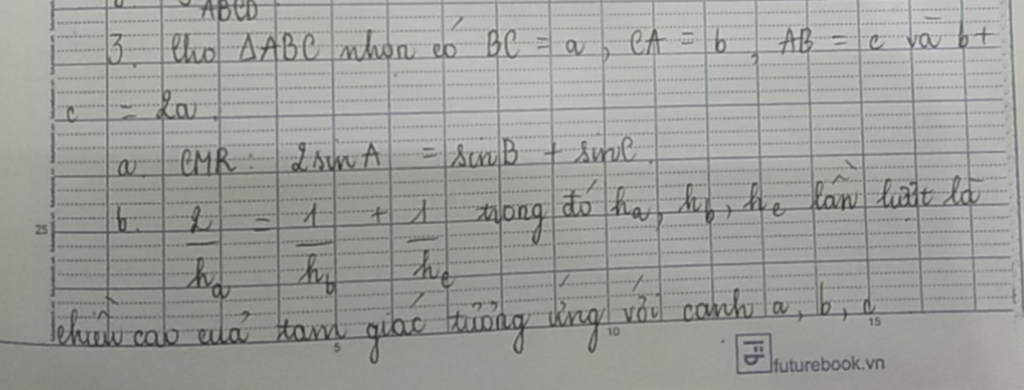 ABCD
3. Cho ΔABC nhọn có BC = a, CA = b, AB = c và b +
c = 2a.
a. CMR: 2sinA = sinB + sinC.
b. 2/hₐ = 1/h_b + 1/h_c trong đó hₐ, h_b, h_c lần lượt là
chiều cao của tam giác tương ứng với cạnh a, b, c
25
5
10
15
futurebook.vn